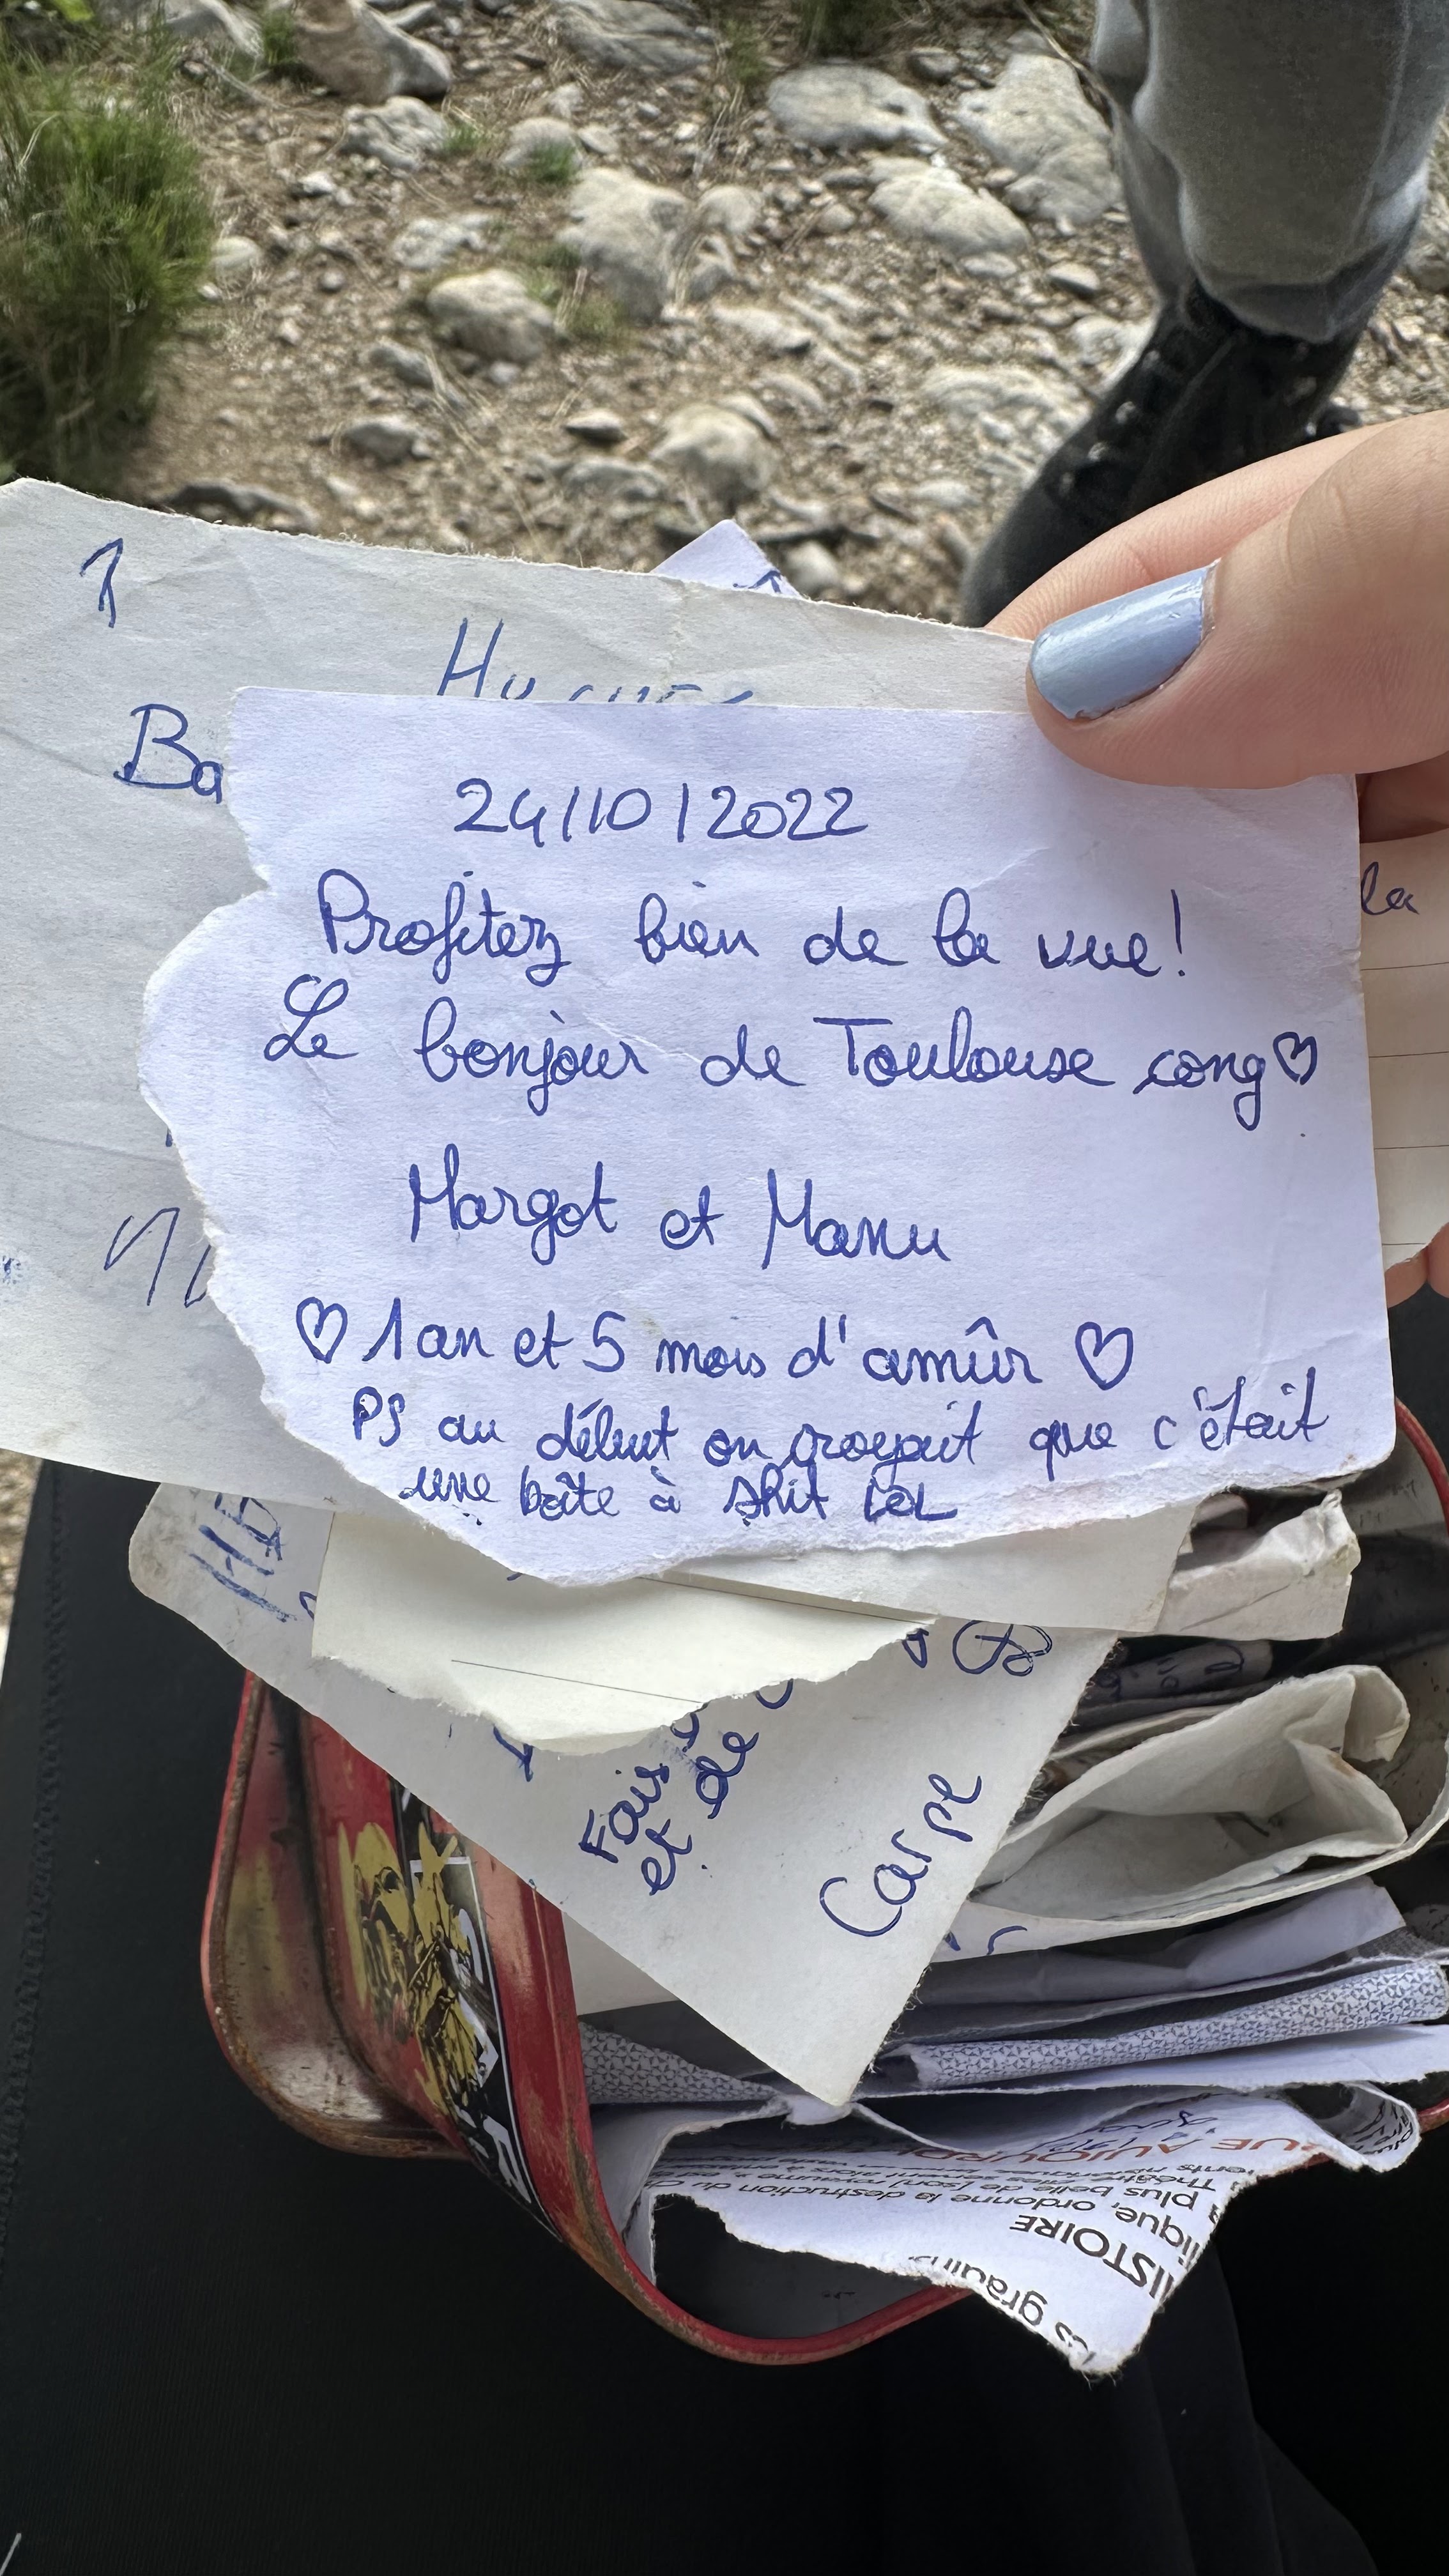 1
Ba
24/10/2022
Profitez bien de la vue!
la
Le bonjour de Toulouse cong♡
Margot et Manu
♡ 1 an et 5 mois d'amûr ♡
PS au début on croyait que c'était
une boîte à shit LOL
Fais
et de
Carpe
HISTOIRE
ordonne la destruction du
plus belle de [son] royaume